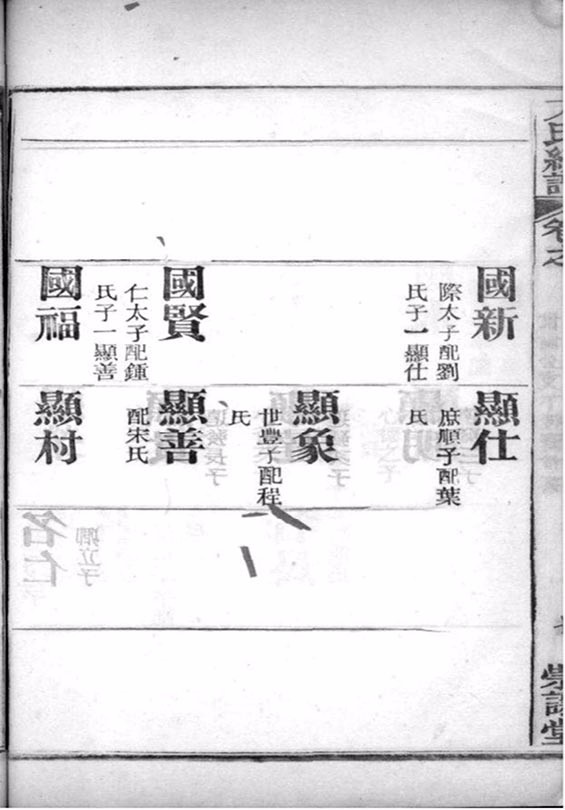 國新
際太子配劉
氏子一顯仕
國賢
仁太子配鍾
氏子一顯善
國福
顯仕
庶順子配葉
氏
顯象
世豐子配程
氏
顯善
配宋氏
顯村
名仁
卿立子
氏
卷之
堂